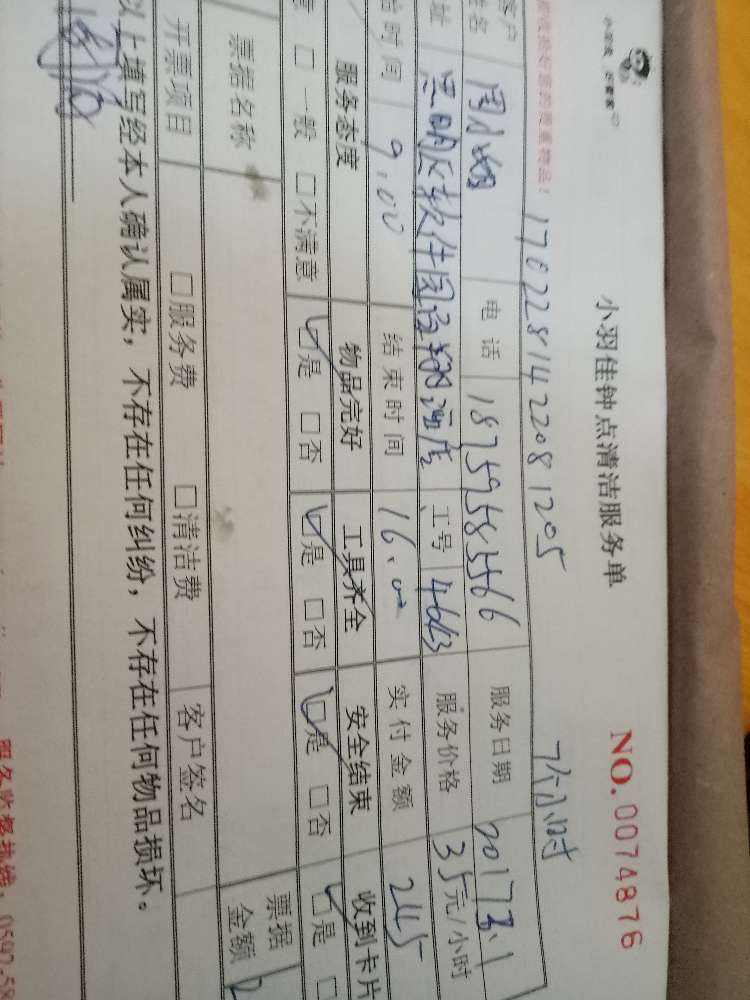 小羽佳钟点清洁服务单
NO.0074876
1702281422081205
7个小时
客户 姓名 周小姐 电话 18759585566 服务日期 2017.3.1
址 思明区软件园 工号 服务价格 35元/小时
时间 9.00 结束时间 16.00 实付金额 245
服务态度 物品完好 工具齐全 安全结束 收到卡片
意 □一般 □不满意 □是 □否 □是 □否 □是 □否 □是
票据名称 票据 金额
开票项目 □服务费 □清洁费 客户签名
以上填写经本人确认属实，不存在任何纠纷，不存在任何物品损坏。